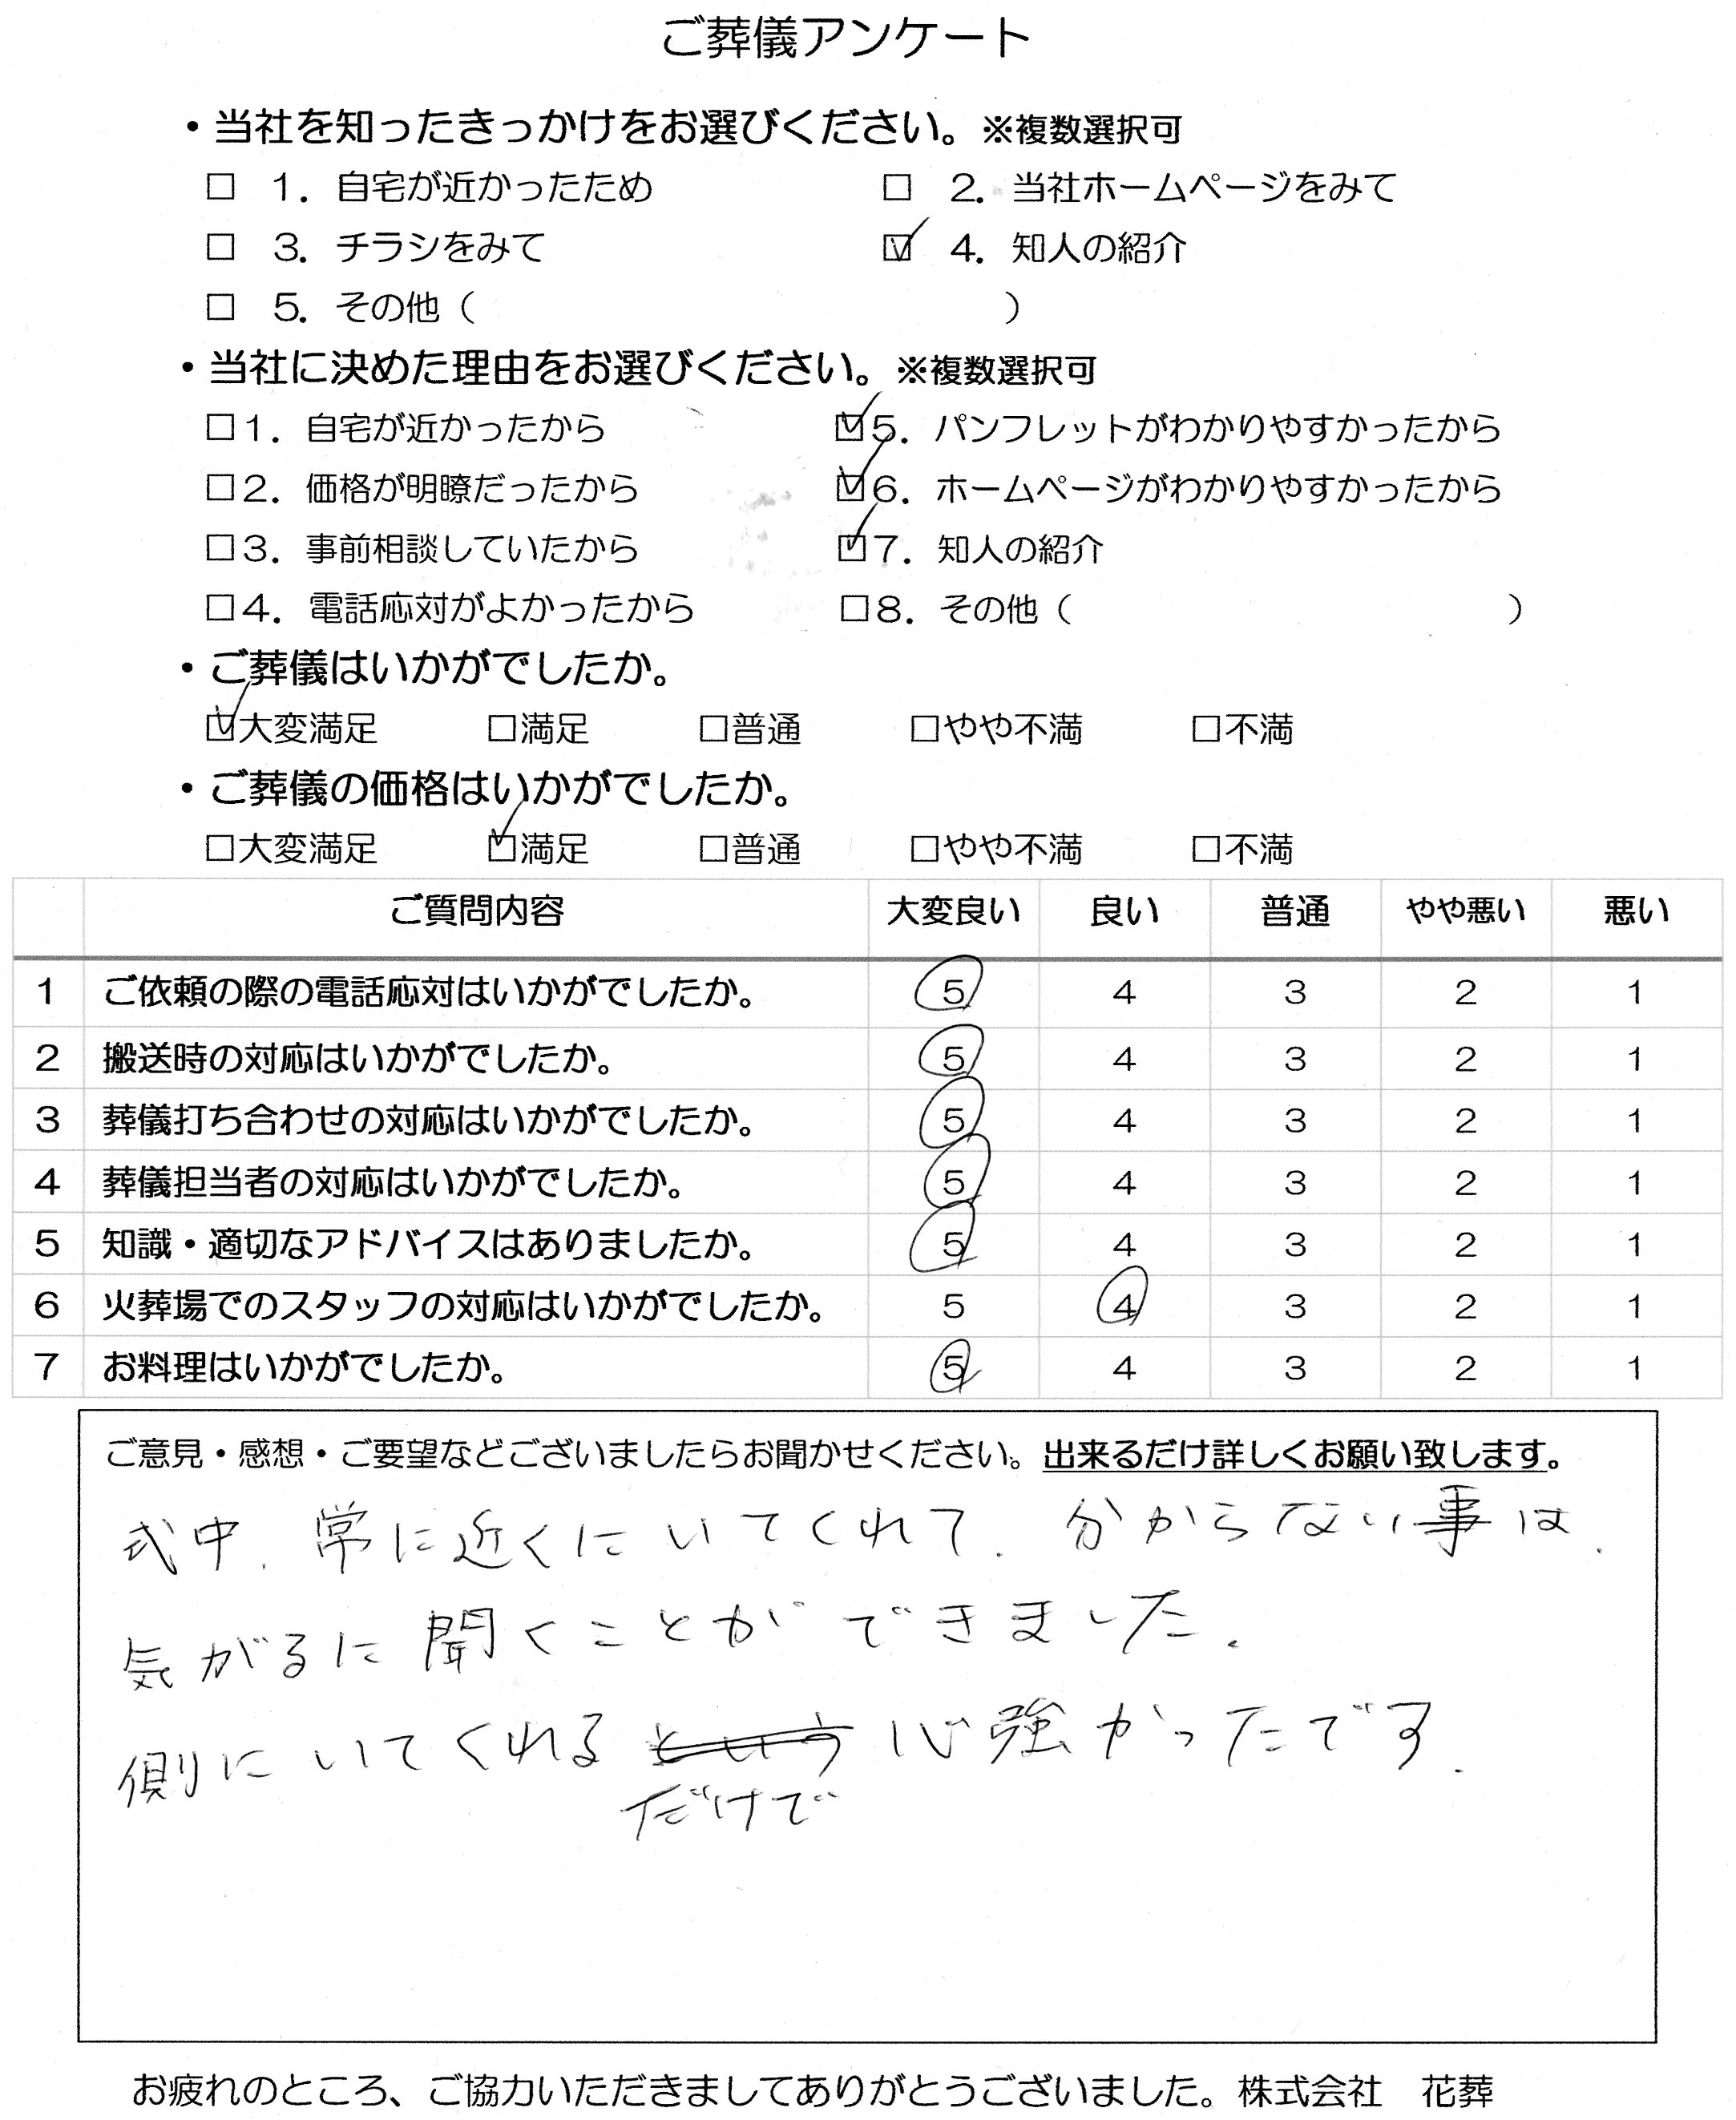 ご葬儀アンケート
・当社を知ったきっかけをお選びください。※複数選択可
□ 1. 自宅が近かったため □ 2. 当社ホームページをみて
□ 3. チラシをみて ☑ 4. 知人の紹介
□ 5. その他（ ）
・当社に決めた理由をお選びください。※複数選択可
□1. 自宅が近かったから ☑5. パンフレットがわかりやすかったから
□2. 価格が明瞭だったから ☑6. ホームページがわかりやすかったから
□3. 事前相談していたから ☑7. 知人の紹介
□4. 電話応対がよかったから □8. その他（ ）
・ご葬儀はいかがでしたか。
☑大変満足 □満足 □普通 □やや不満 □不満
・ご葬儀の価格はいかがでしたか。
□大変満足 ☑満足 □普通 □やや不満 □不満
ご質問内容 大変良い 良い 普通 やや悪い 悪い
1 ご依頼の際の電話応対はいかがでしたか。 5 4 3 2 1
2 搬送時の対応はいかがでしたか。 5 4 3 2 1
3 葬儀打ち合わせの対応はいかがでしたか。 5 4 3 2 1
4 葬儀担当者の対応はいかがでしたか。 5 4 3 2 1
5 知識・適切なアドバイスはありましたか。 5 4 3 2 1
6 火葬場でのスタッフの対応はいかがでしたか。 5 4 3 2 1
7 お料理はいかがでしたか。 5 4 3 2 1
ご意見・感想・ご要望などございましたらお聞かせください。出来るだけ詳しくお願い致します。
式中、常に近くにいてくれて、分からない事は、
気がるに聞くことができました。
側にいてくれるという心強かったです。
だけで
お疲れのところ、ご協力いただきましてありがとうございました。株式会社 花葬